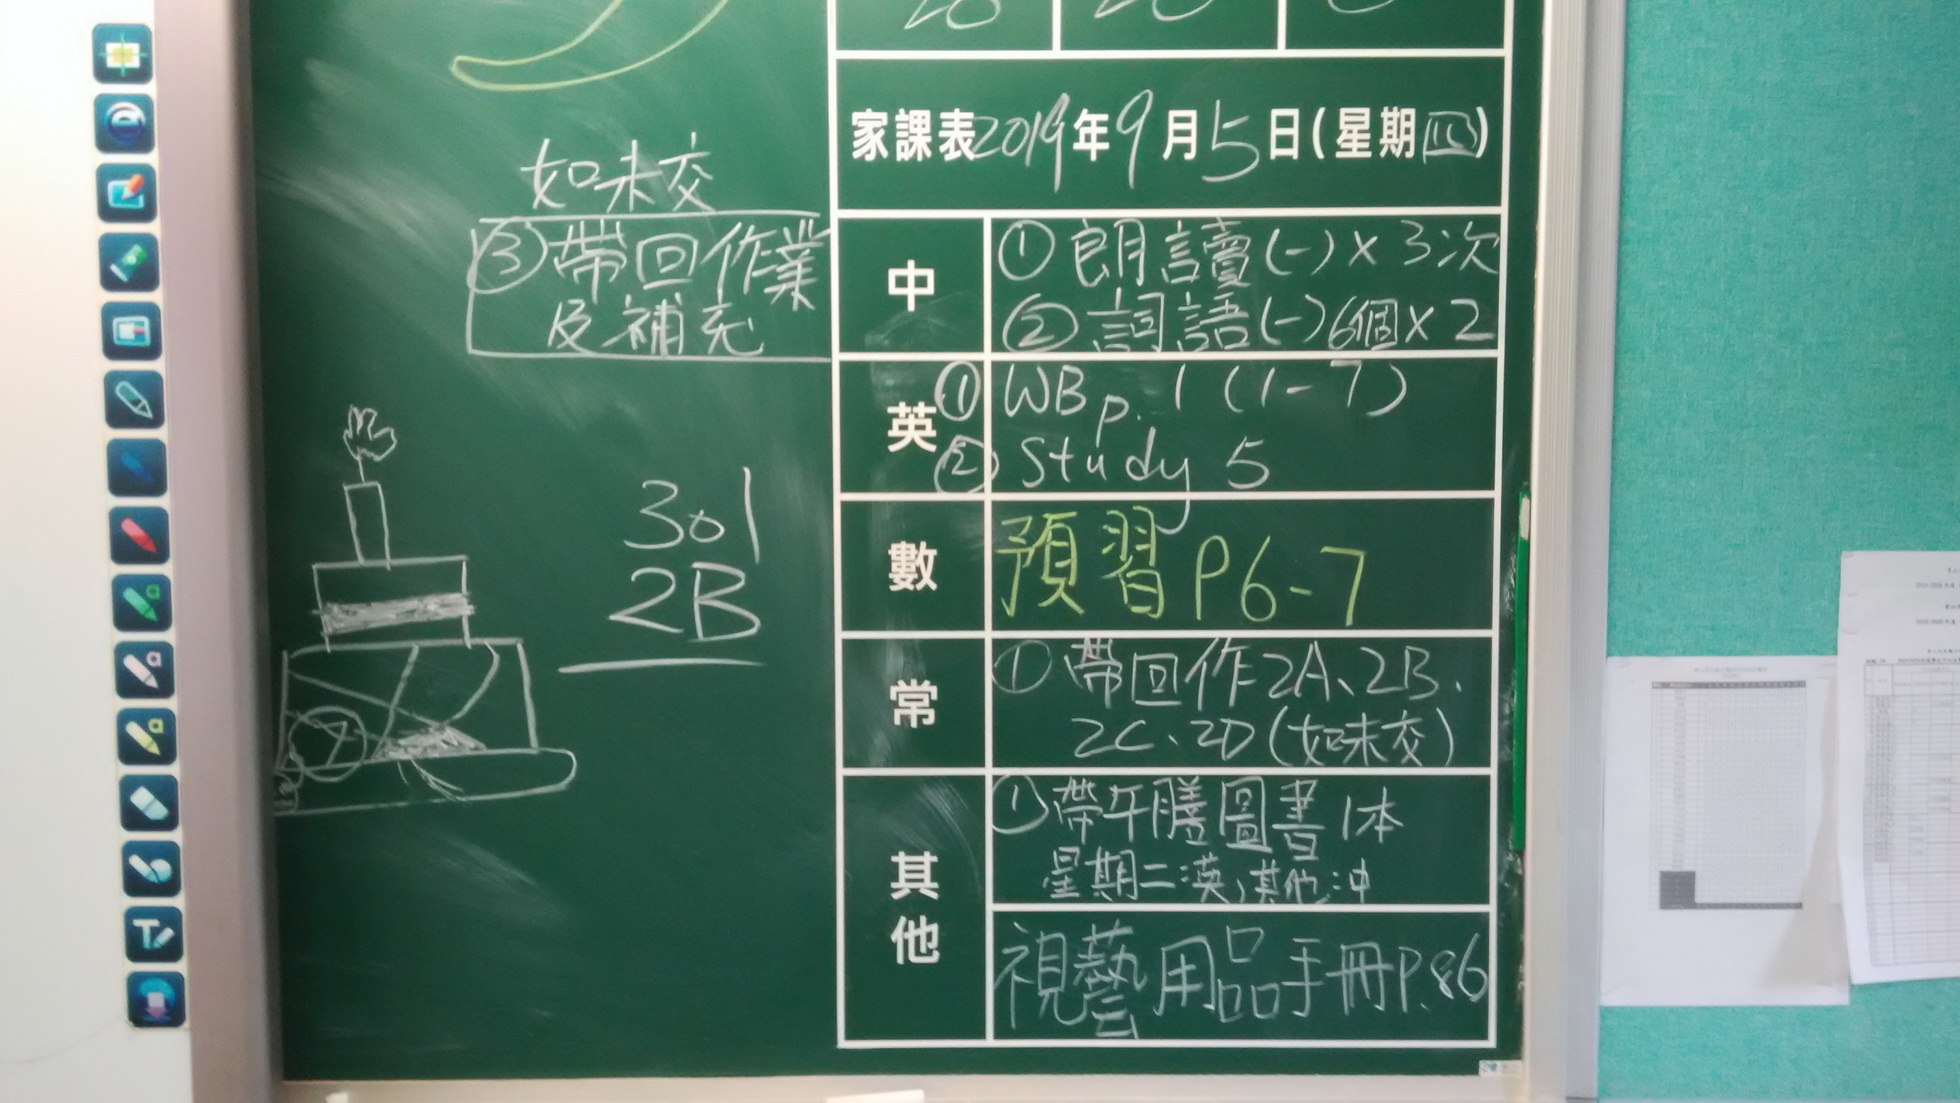 家課表2019年9月5日(星期四)
如未交
③帶回作業
及補充
中
①朗讀(一)×3次
②詞語(一)6個×2
英
①WB p.1 (1-7)
②Study 5
301
2B
數
預習P6-7
常
①帶回作2A、2B、
2C、2D(如未交)
其他
①帶午膳圖書1本
星期二:英,其他:中
視藝用品手冊P.86